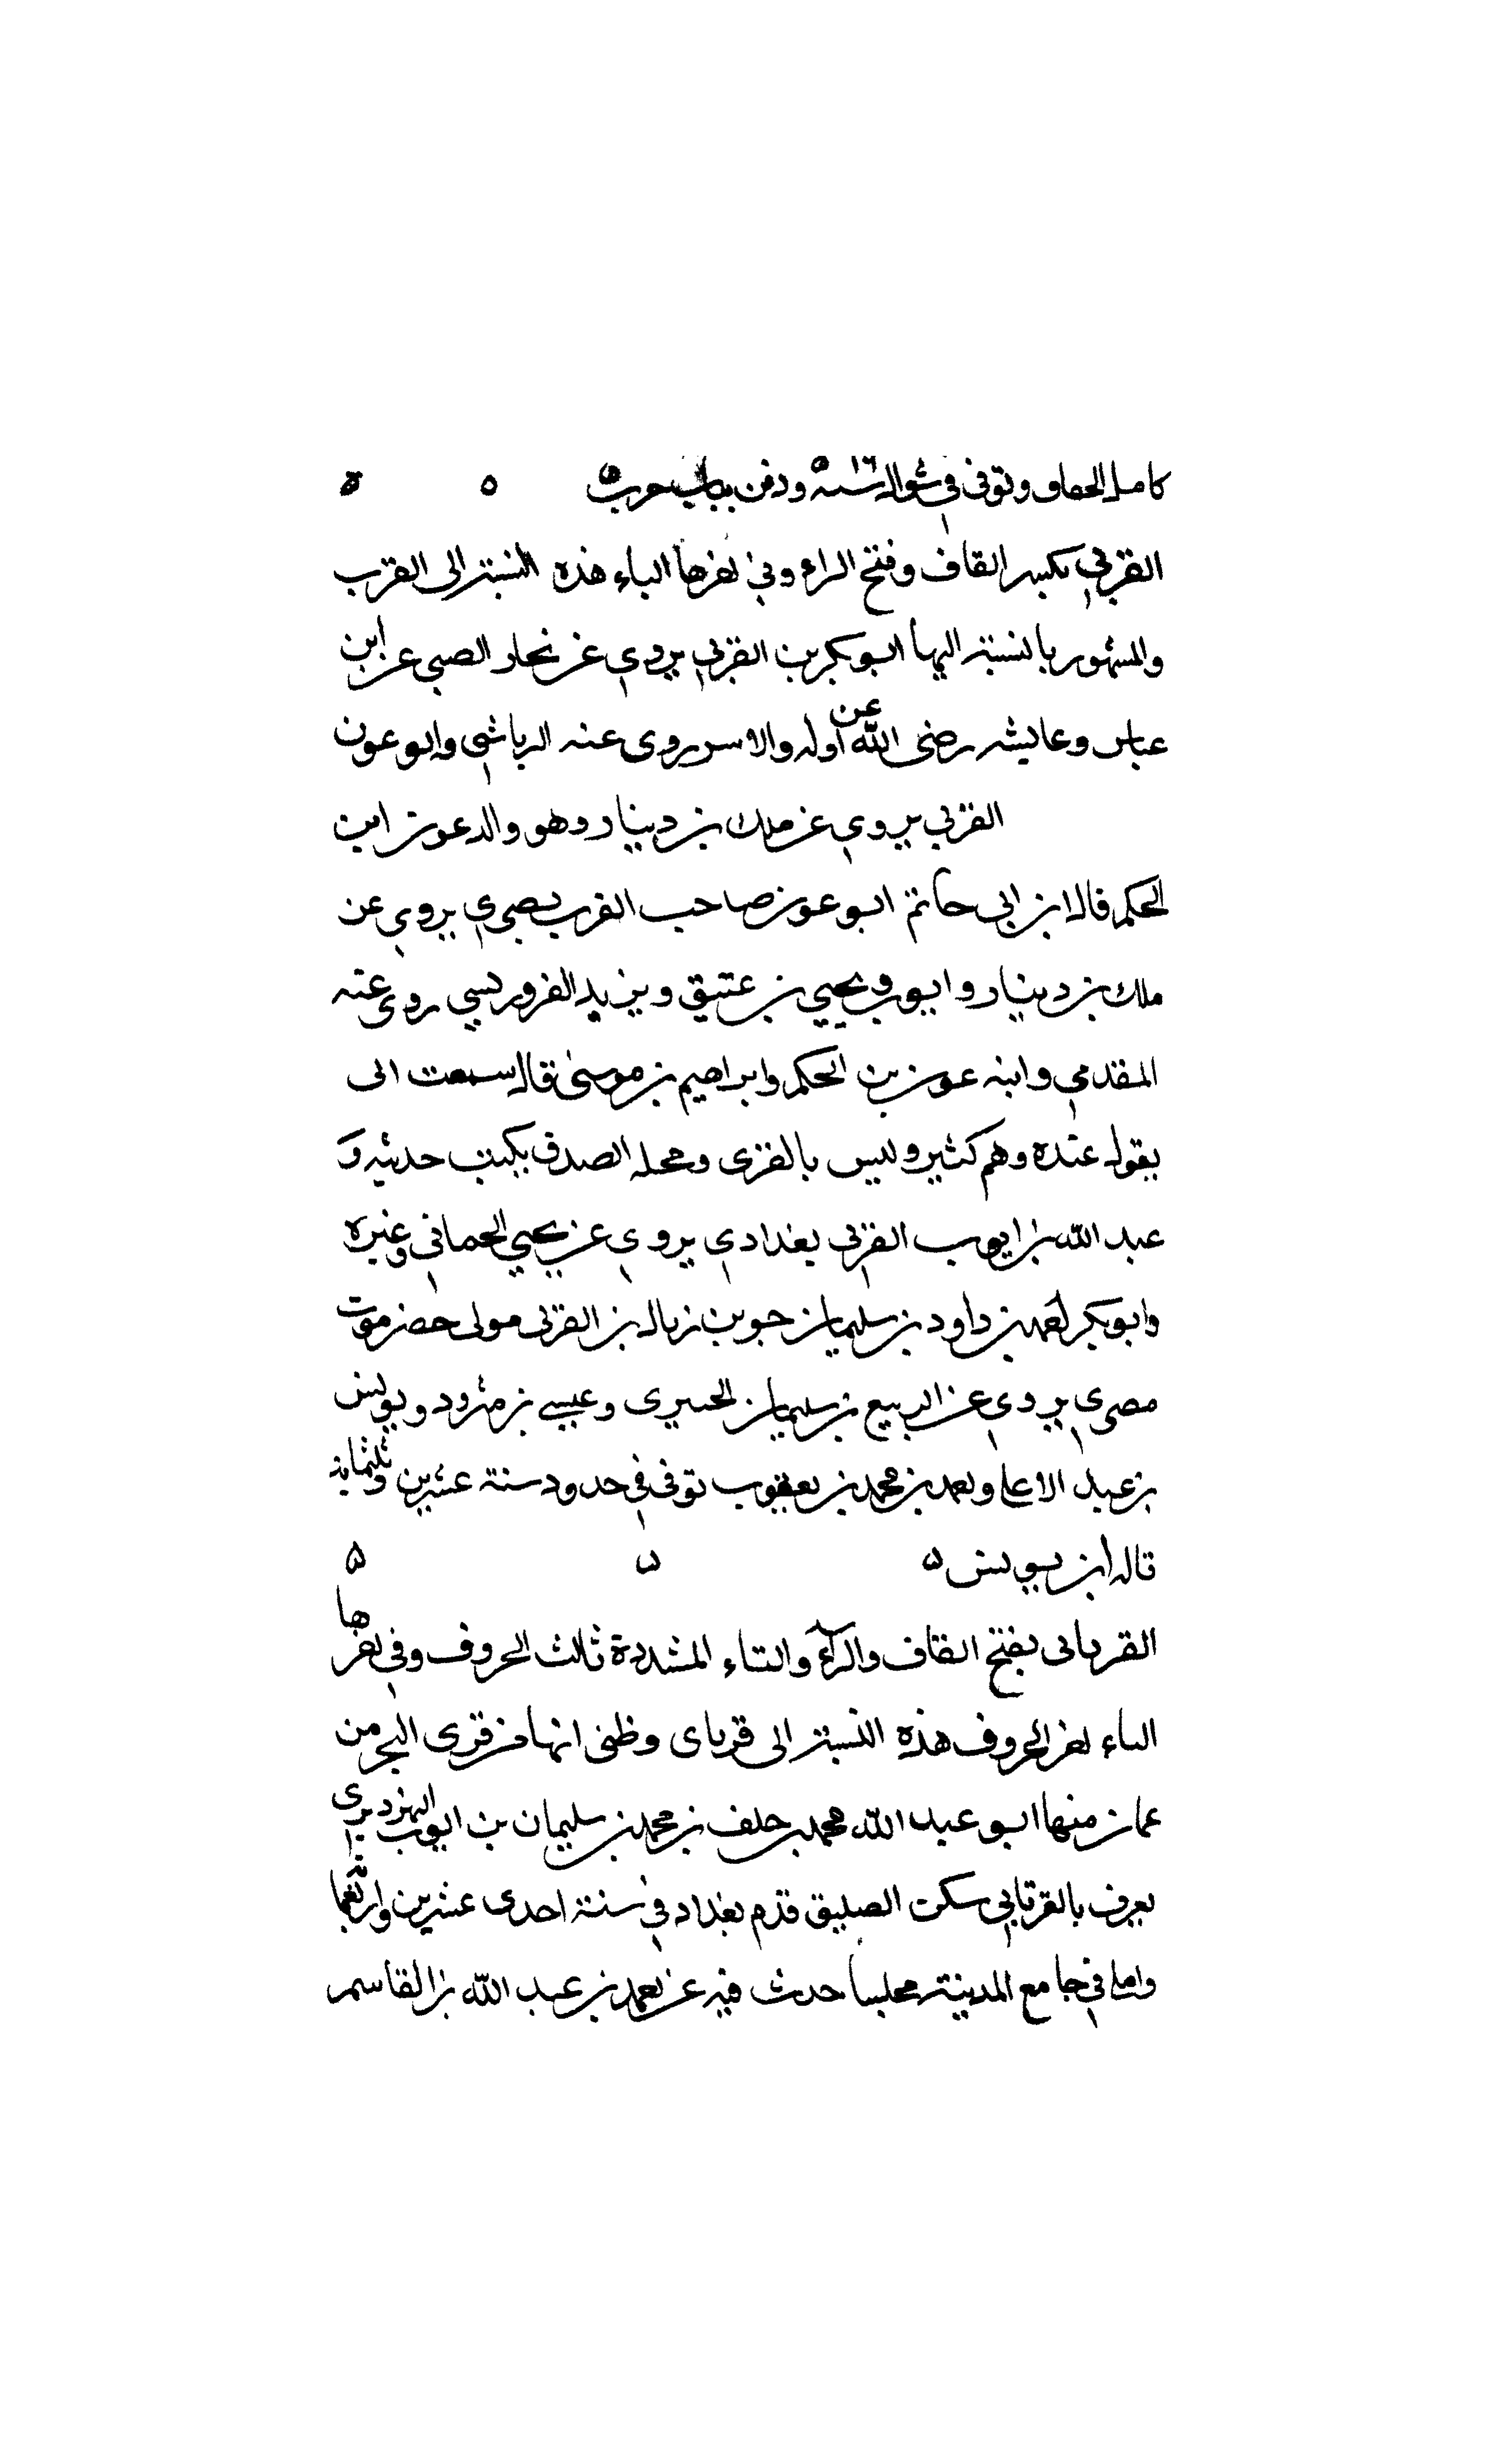 كامل الحفاف وتوفى في شوال سنة ودفن بباب حرب
القربي بكسر القاف وفتح الراء وفي اخرها الباء هذه النسبة الى القرب
والمشهور بالنسبة اليها ابو بكر بن القربي يروي عن الضبي عن ابن
عباس وعايشه رضى الله عن روى عنه الرياشي وابو عون
القربي يروي عن ملك بن دينار وهو والد عون ابن
الحكم قال ابن ابي حاتم ابو عون صاحب القرب بصري يروي عن
ملك بن دينار وايوب ويحيي بن عتيق ويزيد روى عنه
المقدمي وابنه عون بن الحكم وابراهيم بن موسى قال سمعت ابى
يقول عنده وهم كثير وليس بالقوى ومحله الصدق يكتب حديثه و
عبد الله بن ايوب القربي بغدادي يروي عن يحيي الحماني وغيره
وابو بكر احمد بن داود بن سليمان بن القربي مولى حضرموت
مصري يروي عن الربيع بن سليمان وعيسى بن مثرود ويونس
بن عبد الاعلى واحمد بن محمد بن يعقوب توفى في حدود سنة عشرين وثلثماية
قاله ابن يونس
القرتاي بفتح القاف والراء والتاء المشددة ثالث الحروف وفي اخرها
الياء اخر الحروف هذه النسبة الى قرتاى وظنى انها من قرى البحر من
عمان منها ابو عبد الله محمد بن خلف بن محمد بن سليمان بن ايوب
يعرف بالقرتايي سكن الصليق قدم بغداد في سنة احدى عشرين واربعما
واملى في جامع المدينة مجلسا حدث فيه عن احمد بن عبد الله بن القاسم